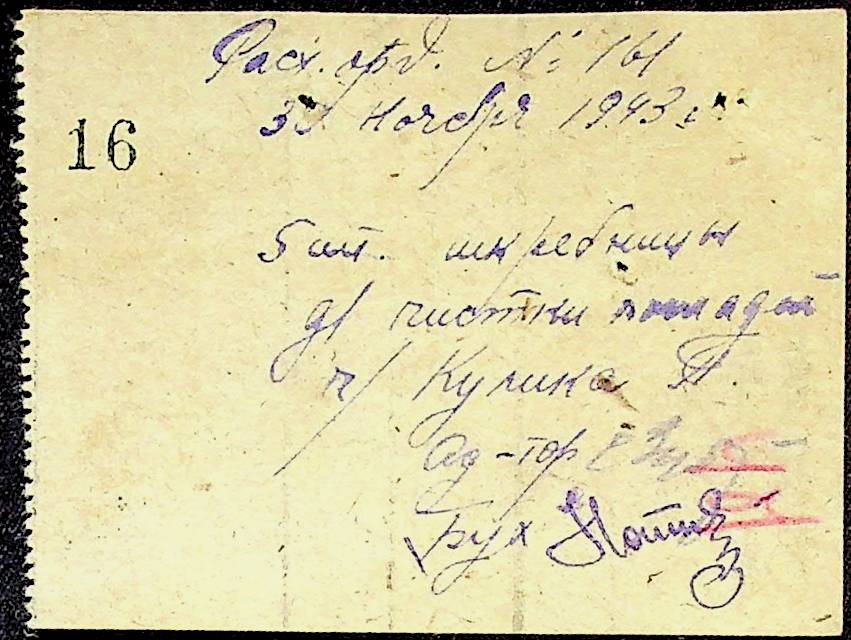 Расх. орд. № 161
30 ноября 1943 г.
16
5 шт. шкребницы
д/ чистки лошадей
ч/ Кулика П.
Бух